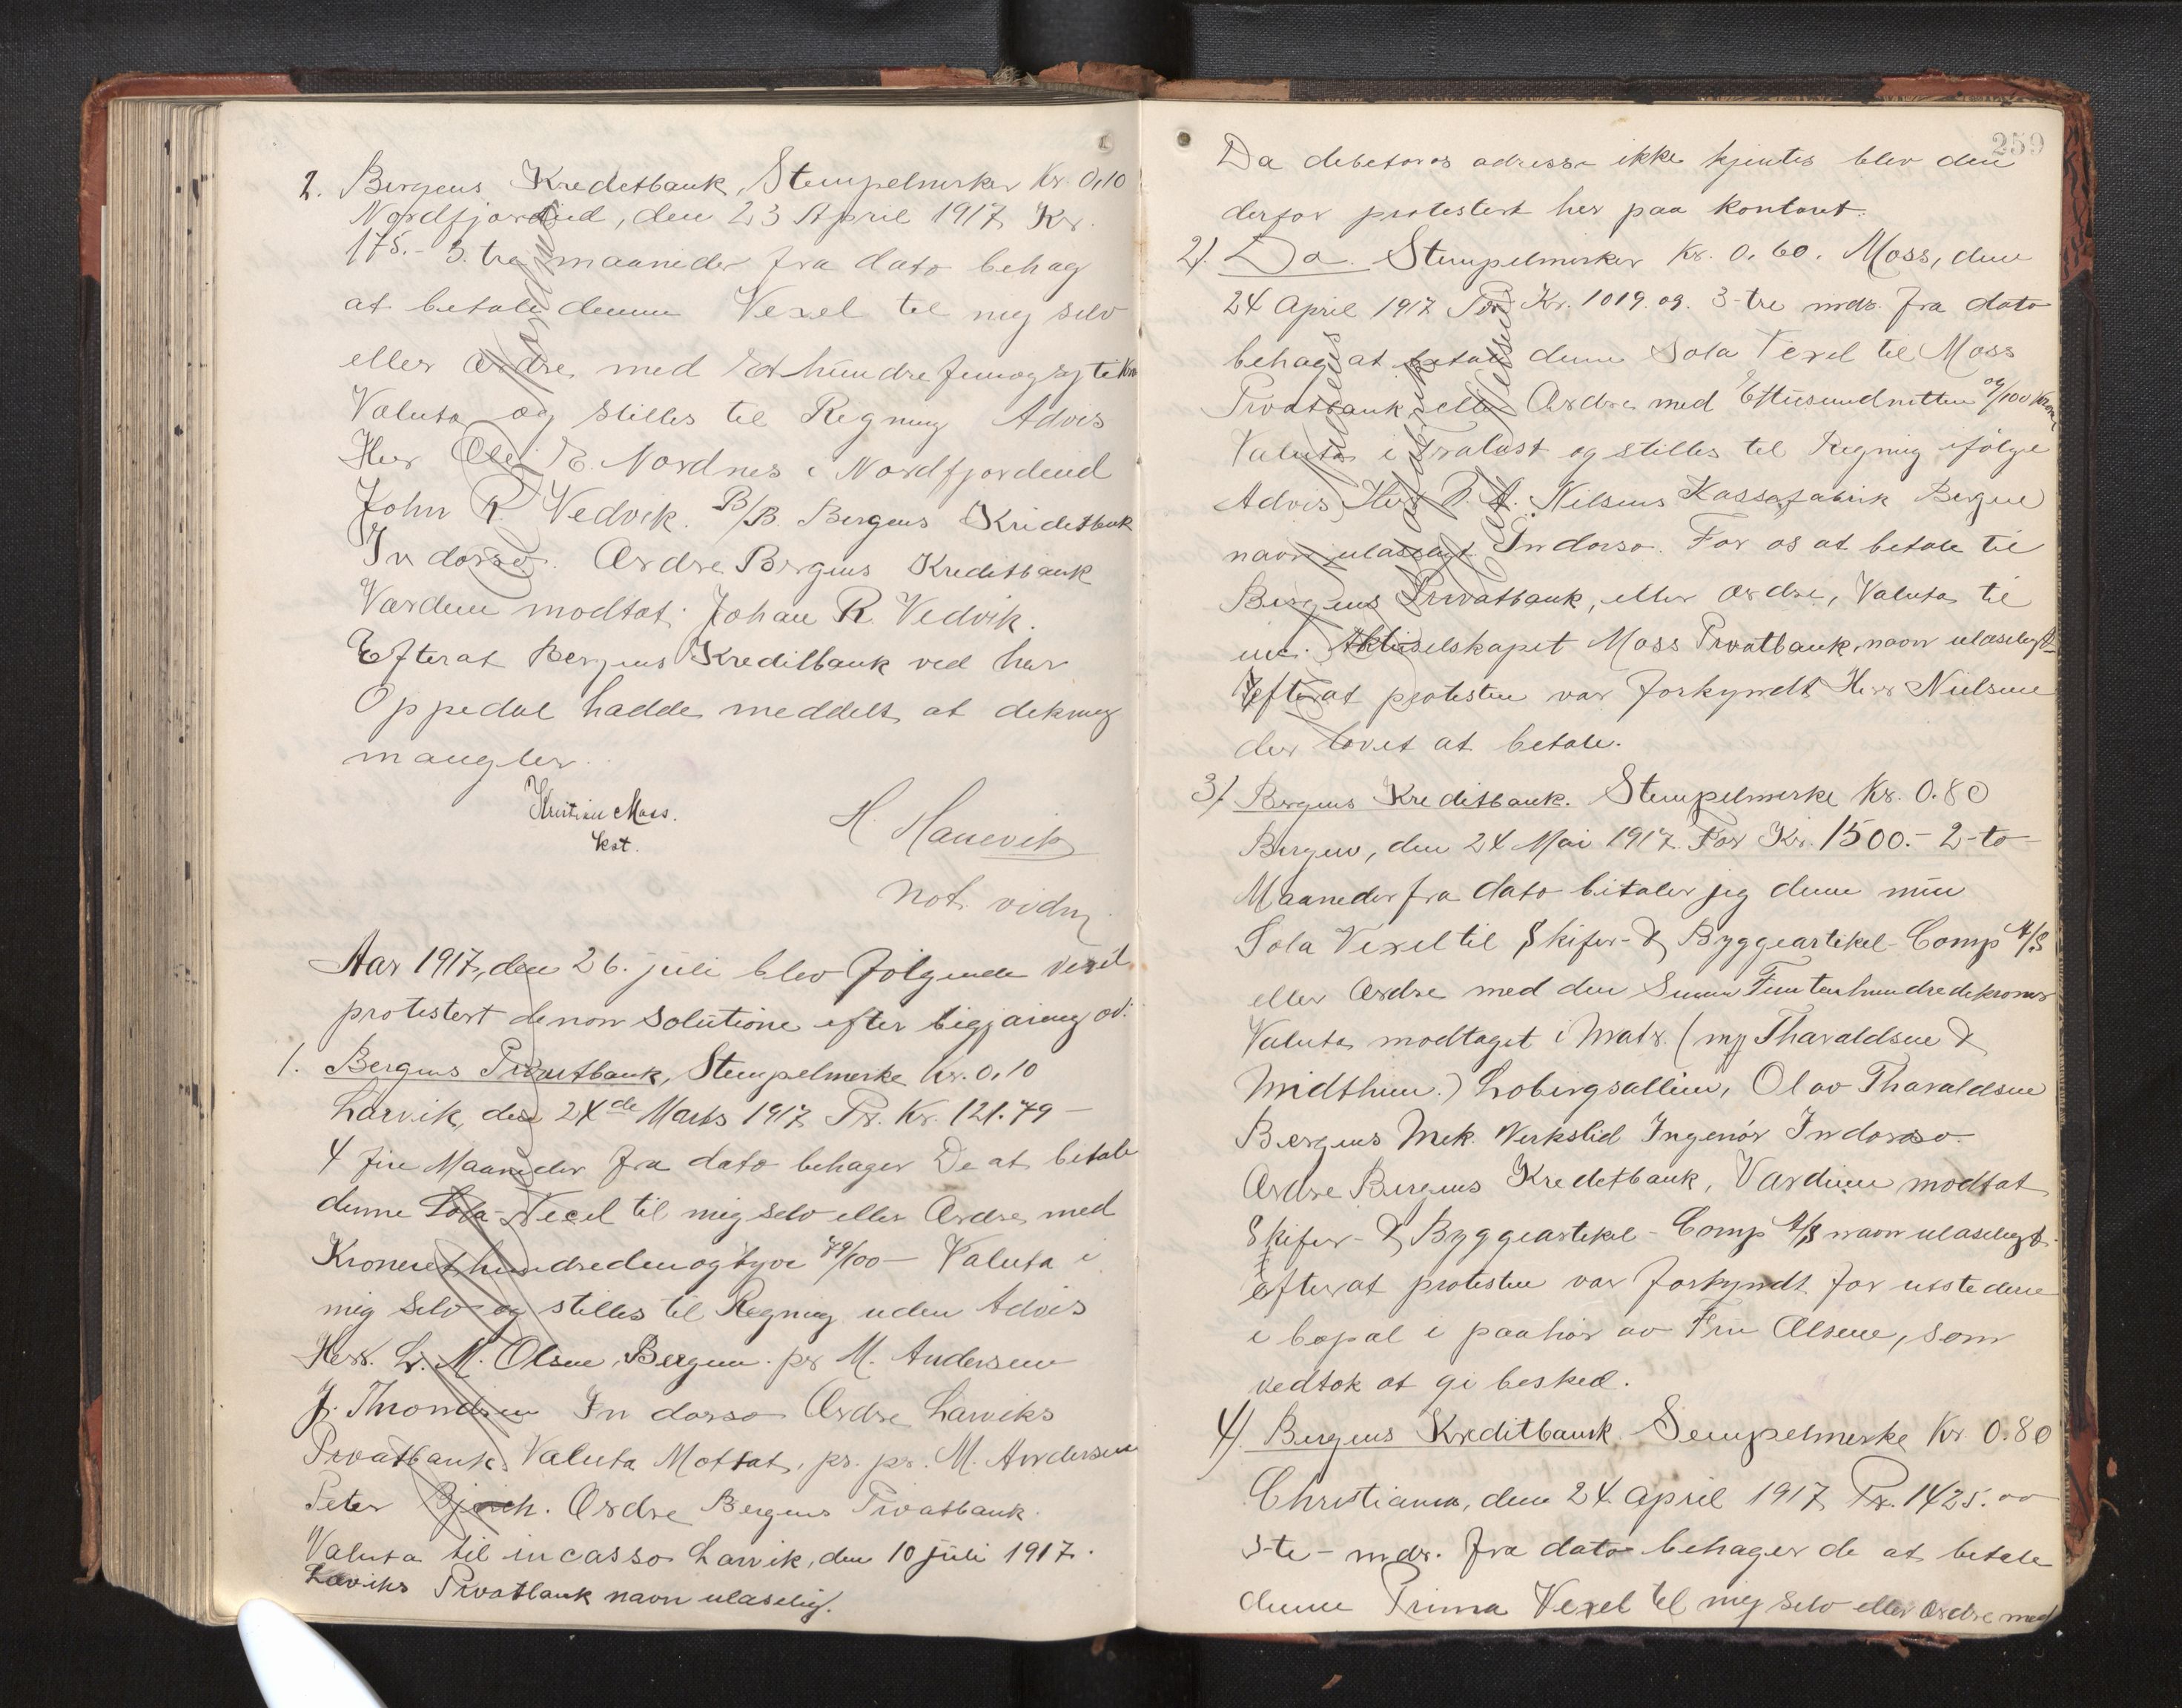 2. Bergens Kreditbank, Stempelmerker Kr. 0,10
Nordfjordeid, den 23 April 1917 Kr.
175.- 3. tre maaneder fra dato behag
at betale denne Vexel til mig selv
eller Ordre med Et hundre femogsytti Kr
Valuta og stilles til Regning Advis
Herr Ole E. Nordnes i Nordfjordeid
John R. Vedvik. B/B. Bergens Kreditbank
In dorso. Ordre Bergens Kreditbank
Værdien modtat. Johan R. Vedvik.
Efterat Bergens Kreditbank ved herr
Oppedal hadde meddelt at dekning
mangler.
Kristian Mass.
kst.
H. Hanevik
not. vidn
Aar 1917, den 26. juli blev følgende vexel
protestert de non solutione efter begjæring av:
1. Bergens Privatbank, Stempelmerke Kr. 0,10
Larvik, den 24de Marts 1917 Pr. Kr. 121.79 -
4 fire Maaneder fra dato behager De at betale
denne Sola-Vexel til mig selv eller Ordre, med
Kroner et hundredeenogtyve 79/100 - Valuta i
mig selv og stilles til Regning uden Advis
Herr. L. M. Olsen, Bergen. pr M. Andersen
J. Throndsen In dorso Ordre Larviks
Privatbank. Valuta Mottat, pr. pr. M. Andersen
Peter. Ordre Bergens Privatbank.
Valuta til incasso Larvik, den 10 juli 1917.
Larviks Privatbank navn ulæselig.
259
Da debitors adresse ikke kjentes blev den
derfor protestert her paa kontoret.
2). Do. Stempelmerker Kr. 0.60. Moss, den
24 April 1917 For Kr. 1019.09. 3-tre mdr. fra dato
behag at betale denne Sola Vexel til Moss
Privatbank eller Ordre med Ettusendnitten 09/100 Kroner
Valuta i Trælast og stilles til Regning ifølge
Advis, Herr T. A. Nilsens Kassefabrik Bergen
navn ulæseligt. In dorso. For os at betale til
Bergens Privatbank, eller ordre, Valuta til
inc. Aktieselskapet Moss Privatbank, navn ulæseligt
Efterat protesten var forkyndt Herr Nielsen
der lovet at betale.
3). Bergens Kreditbank. Stempelmerke Kr. 0.80
Bergen, den 24 Mai 1917. For Kr. 1500.- 2-to-
Maaneder fra dato betaler jeg denne min
Sola Vexel til Skifer- & Byggeartikel-Comp A/S
eller Ordre med den Summa Femtenhundredekroner
Valuta modtaget i Matr. (my Tharaldsen &
Midthun.) Lobergsalleen, Olav Tharaldsen
Bergens Mek. Verksted Ingeniør In dorso.
Ordre Bergens Kreditbank, Værdien modtat
Skifer- & Byggeartikel-Comp A/S navn ulæseligt.
Efterat protesten var forkyndt for utstederen
i bopæl i paahør av Fru Olsen, som
vedtok at gi besked.
4). Bergens Kreditbank. Sempelmerke Kr. 0.80
Christiania, den 24 April 1917 Pr. 1425.00
3-te- mdr. fra dato behager de at betale
denne Prima Vexel til mig selv eller Ordre med